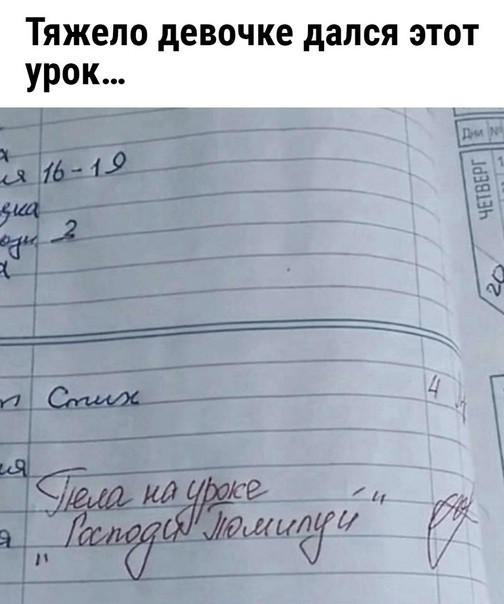 Тяжело девочке дался этот
урок...
Дни №
ЧЕТВЕРГ
16-19
2
20
Стих
4
Пела на уроке
"Господи Помилуй"